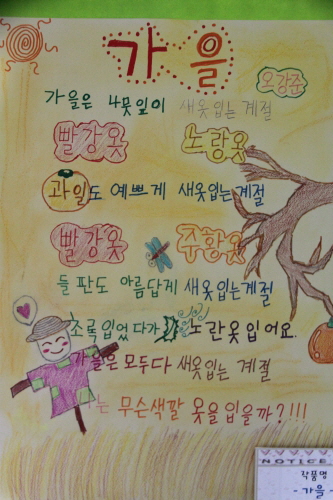 가을
오강준
가을은 나뭇잎이 새옷입는 계절
빨강옷 노랑옷
과일도 예쁘게 새옷입는 계절
빨강옷 주황옷
들판도 아름답게 새옷입는 계절
초록입었다가 노란옷입어요.
가을은 모두다 새옷입는 계절
는 무슨색깔 옷을 입을까?!!!
NOTICE
작품명
- 가을 -